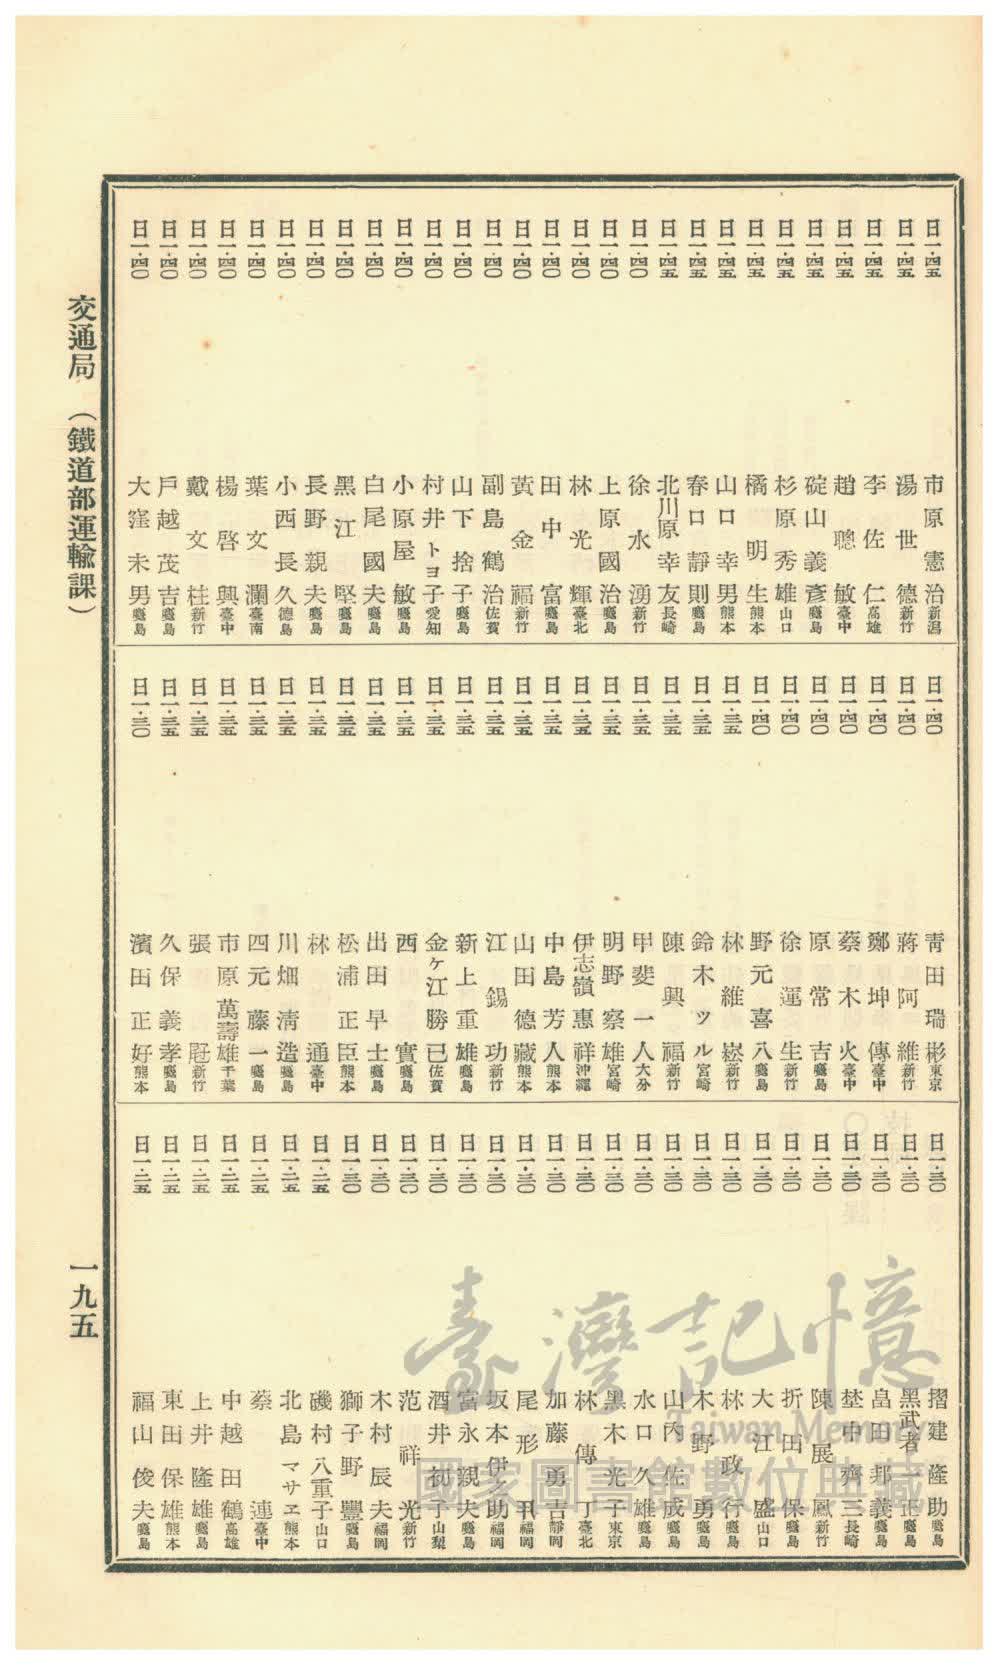 日一・四五 市原憲治 新潟
日一・四五 湯世德 新竹
日一・四五 李佐仁 高雄
日一・四五 趙聰敏 臺中
日一・四五 碇山義彥 鹿兒島
日一・四五 杉原秀雄 山口
日一・四五 橘明生 熊本
日一・四五 山口幸男 熊本
日一・四五 春口靜則 鹿兒島
日一・四五 北川原幸友 長崎
日一・四〇 徐水湧 新竹
日一・四〇 上原國治 鹿兒島
日一・四〇 林光輝 臺北
日一・四〇 田中富 鹿兒島
日一・四〇 黃金福 新竹
日一・四〇 副島鶴治 佐賀
日一・四〇 山下捨子 鹿兒島
日一・四〇 村井トヨ子 愛知
日一・四〇 小原屋敏 鹿兒島
日一・四〇 白尾國夫 鹿兒島
日一・四〇 黑江堅 鹿兒島
日一・四〇 長野親夫 鹿兒島
日一・四〇 小西長久 德島
日一・四〇 葉文瀾 臺南
日一・四〇 楊啓興 臺中
日一・四〇 戴文桂 新竹
日一・四〇 戶越茂吉 鹿兒島
日一・四〇 大窪未男 鹿兒島
日一・四〇 靑田瑞彬 東京
日一・四〇 蔣阿維 新竹
日一・四〇 鄭坤傳 臺中
日一・四〇 蔡木火 臺中
日一・四〇 原常吉 鹿兒島
日一・四〇 徐運生 新竹
日一・四〇 野元喜八 鹿兒島
日一・三五 林維崧 新竹
日一・三五 鈴木ツル 宮崎
日一・三五 陳興福 新竹
日一・三五 甲斐一人 大分
日一・三五 明野察雄 宮崎
日一・三五 伊志嶺惠祥 沖繩
日一・三五 中島芳人 熊本
日一・三五 山田德藏 熊本
日一・三五 江錫功 新竹
日一・三五 新上重雄 鹿兒島
日一・三五 金ヶ江勝已 佐賀
日一・三五 西實 鹿兒島
日一・三五 出田早士 鹿兒島
日一・三五 松浦正臣 熊本
日一・三五 林通 臺中
日一・三五 川畑淸造 鹿兒島
日一・三五 四元藤一 鹿兒島
日一・三五 市原萬壽雄 千葉
日一・三五 張 新竹
日一・三五 久保義孝 鹿兒島
日一・三〇 濱田正好 熊本
日一・三〇 摺建隆助 鹿兒島
日一・三〇 黑武者一正 鹿兒島
日一・三〇 畠田邦義 鹿兒島
日一・三〇 埜中齊三 長崎
日一・三〇 陳展鳳 新竹
日一・三〇 折田保 鹿兒島
日一・三〇 大江盛 山口
日一・三〇 林政行 鹿兒島
日一・三〇 木野勇 鹿兒島
日一・三〇 山內佐成 鹿兒島
日一・三〇 水口久雄 鹿兒島
日一・三〇 黑木光子 東京
日一・三〇 林傳丁 臺北
日一・三〇 加藤勇吉 靜岡
日一・三〇 尾形 福岡
日一・三〇 坂本伊之助 福岡
日一・三〇 富永親夫 鹿兒島
日一・三〇 酒井初子 山梨
日一・三〇 范祥光 新竹
日一・三〇 木村辰夫 福岡
日一・三〇 獅子野豐 鹿兒島
日一・二五 磯村八重子 山口
日一・二五 北島マサヱ 熊本
日一・二五 蔡連 臺中
日一・二五 中越田鶴 高雄
日一・二五 上井隆雄 鹿兒島
日一・二五 東田保雄 熊本
日一・二五 福山俊夫 鹿兒島
交通局 （鐵道部運輸課）
一九五
臺灣記憶
Taiwan Memory
國家圖書館數位典藏